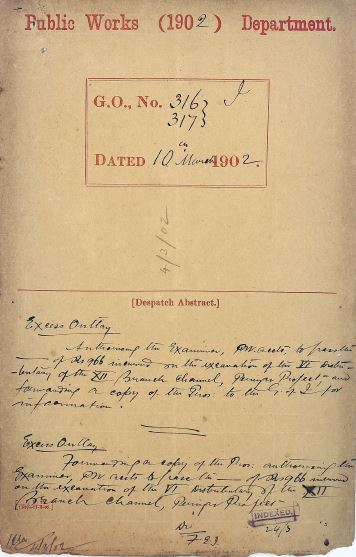 Public Works (1902) Department.
G.O., No. 316 } I
317 }
DATED 10th March 1902.
4/3/02
[Despatch Abstract.]
Excess Outlay
Authorising the Examiner, P.W. accts to pass the
of Rs 966 incurred on the excavation of the VI Distri-
-butary of the XII Branch Channel, Periyar Project and
forwarding a copy of the Pros: to the G of I for
information.
Excess Outlay
Forwarding a copy of the Pros: authorising the
Examiner, P.W accts to pass the of Rs 966 incurred
on the excavation of the VI Distributary of the XII
Branch Channel, Periyar Project
INDEXED.
24/3